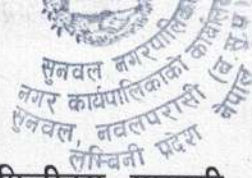 सुनवल नगरपालिका
नगर कार्यपालिकाको कार्यालय
सुनवल, नवलपरासी (ब.सु.प.)
लुम्बिनी प्रदेश
नेपाल